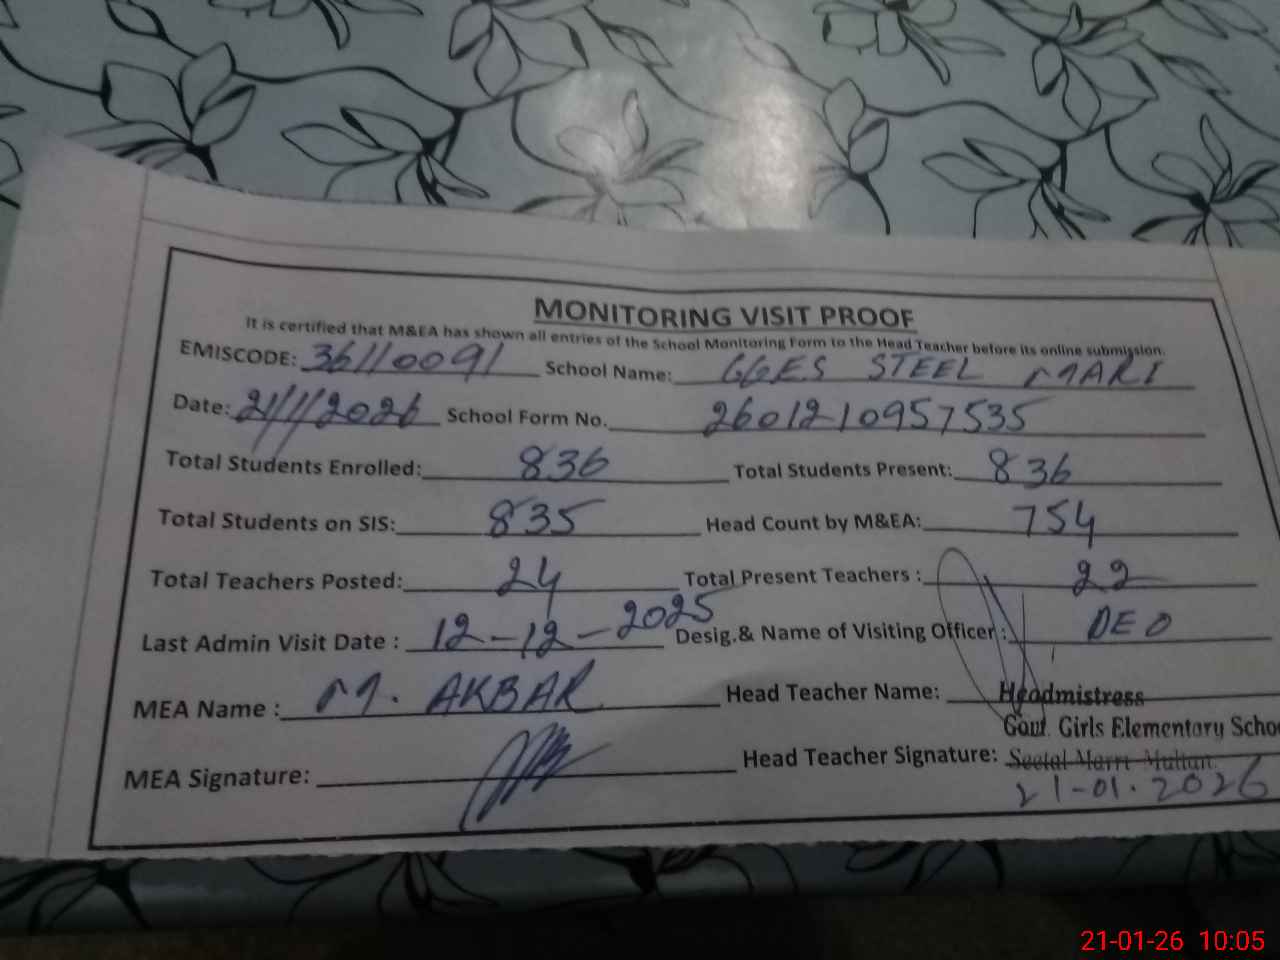 MONITORING VISIT PROOF
It is certified that M&EA has shown all entries of the School Monitoring Form to the Head Teacher before its online submission.
EMISCODE: 36110091 School Name: GGES STEEL MARI
Date: 21/1/2026 School Form No. 2601210957535
Total Students Enrolled: 836 Total Students Present: 836
Total Students on SIS: 835 Head Count by M&EA: 754
Total Teachers Posted: 24 Total Present Teachers : 22
Last Admin Visit Date : 12-12-2025 Desig.& Name of Visiting Officer : DEO
MEA Name : M. AKBAR Head Teacher Name: Headmistress
Govt. Girls Elementary Schoo
MEA Signature: Head Teacher Signature: Seetal Marri Multan.
21-01.2026
21-01-26 10:05